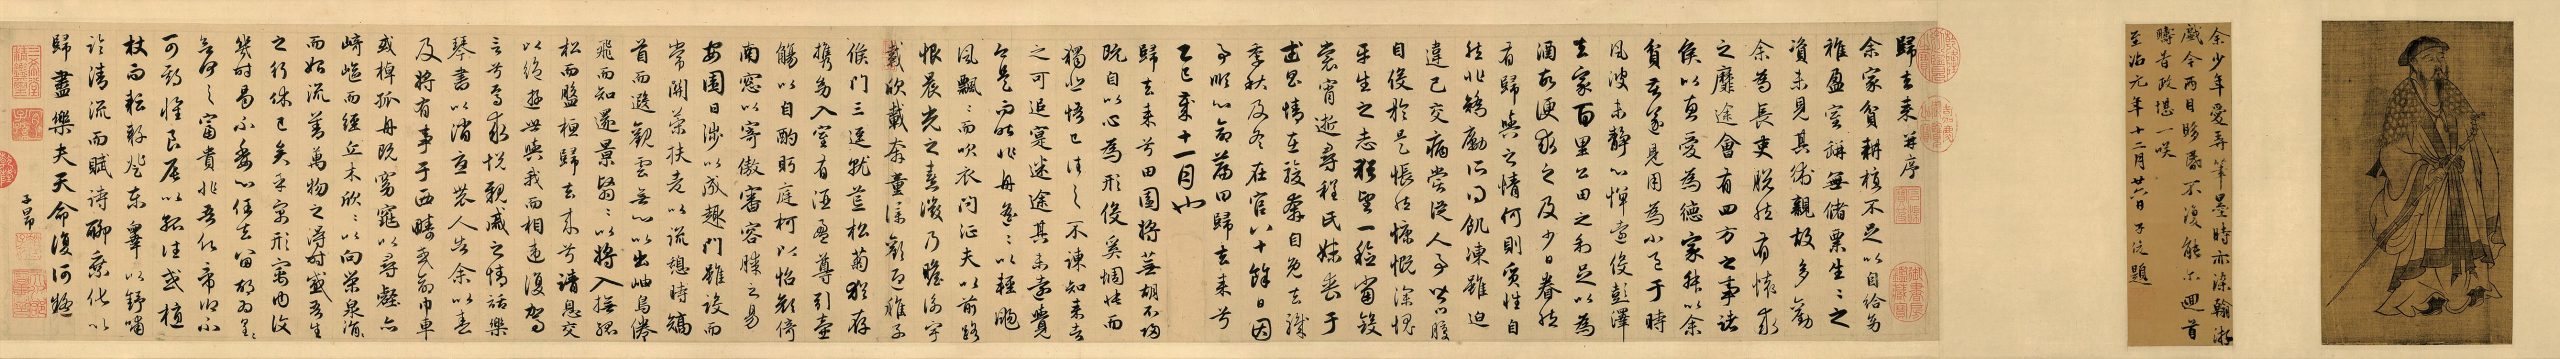 余少年愛弄筆墨時亦染翰游
戲今兩目眵昏不復能尔迴首
疇昔政堪一咲
至治元年十二月廿六日 子俊題
歸去來并序
余家貧耕植不足以自給幼
稚盈室缾無儲粟生〻之
資未見其術親故多勸
余為長吏脫然有懷求
之靡途會有四方之事諸
侯以惠愛為德家叔以余
貧苦遂見用為小邑于時
風波未靜心憚遠役彭澤
去家百里公田之利足以為
酒故便求之及少日眷然
有歸與之情何則質性自
然非矯勵所得飢凍雖迫
違己交病嘗從人事皆口腹
自役於是悵然慷慨深愧
平生之志猶望一稔當斂
裳宵逝尋程氏妹喪于
武昌情在駿奔自免去職
季秋及冬在官八十餘日因
事順心命篇曰歸去來兮
乙巳歲十一月也
歸去來兮田園將蕪胡不歸
既自以心為形役奚惆悵而
獨悲悟已往之不諫知來者
之可追寔迷途其未遠覺
今是而昨非舟遙〻以輕颺
風飄〻而吹衣問征夫以前路
恨晨光之熹微乃瞻衡宇
載欣載奔童僕歡迎稚子
候門三逕就荒松菊猶存
攜幼入室有酒盈尊引壺
觴以自酌眄庭柯以怡顏倚
南窓以寄傲審容膝之易
安園日涉以成趣門雖設而
常關策扶老以流憩時矯
首而遐觀雲無心以出岫鳥倦
飛而知還景翳〻以將入撫孤
松而盤桓歸去來兮請息交
以絕遊世與我而相違復駕
言兮焉求悅親戚之情話樂
琴書以消憂農人告余以春
及將有事于西疇或命巾車
或棹孤舟既窈窕以尋壑亦
崎嶇而經丘木欣〻以向榮泉涓〻
而始流善萬物之得時感吾生
之行休已矣乎寓形宇內復
幾時曷不委心任去留胡為遑〻
欲何之富貴非吾願帝鄉不
可期懷良辰以孤往或植
杖而耘耔登東皋以舒嘯
臨清流而賦詩聊乘化以
歸盡樂夫天命復何疑
子昂